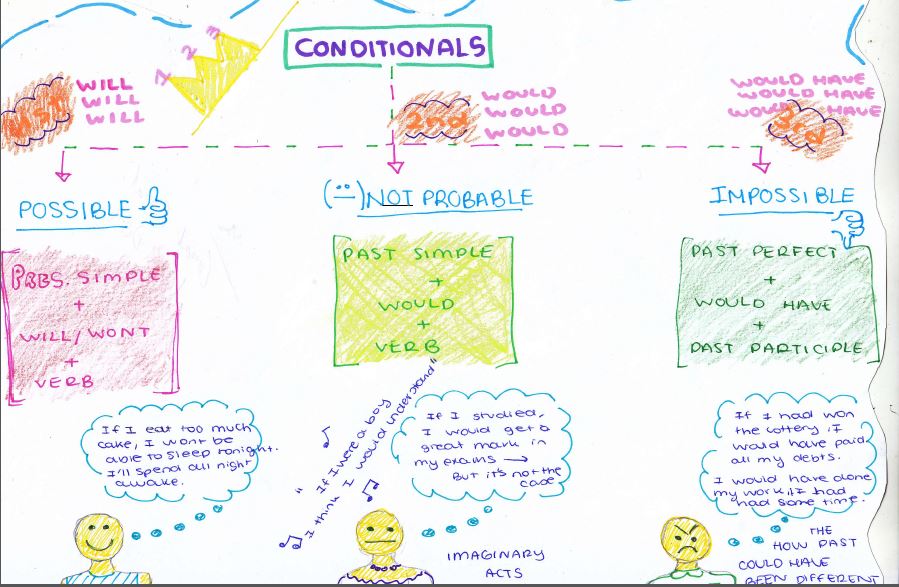 CONDITIONALS
1 2 3
1st
WILL
WILL
WILL
2nd
WOULD
WOULD
WOULD
3rd
WOULD HAVE
WOULD HAVE
WOULD HAVE
POSSIBLE
PRES. SIMPLE
+
WILL/WONT
+
VERB
If I eat too much
cake, I wont be
able to sleep tonight.
I'll spend all night
awake.
NOT PROBABLE
PAST SIMPLE
+
WOULD
+
VERB
" If I were a boy
I think I would understand"
If I studied,
I would get a
great mark in
my exams →
But it's not the
case
IMAGINARY
ACTS
IMPOSSIBLE
PAST PERFECT
+
WOULD HAVE
+
PAST PARTICIPLE
If I had won
the lottery, I
would have paid
all my debts.
I would have done
my work if I had
had some time.
THE
HOW PAST
COULD HAVE
BEEN DIFFERENT